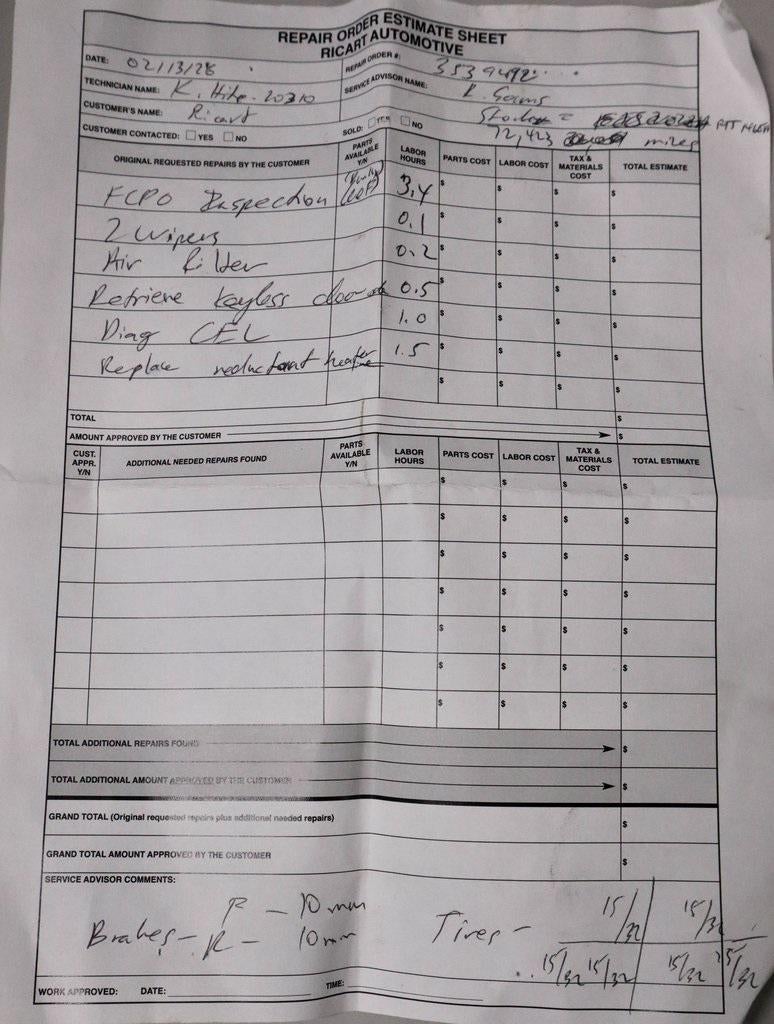 REPAIR ORDER ESTIMATE SHEET
RICART AUTOMOTIVE
DATE: 02/13/28 REPAIR ORDER #: 3539492
TECHNICIAN NAME: K. Hite 20310 SERVICE ADVISOR NAME: R.
CUSTOMER'S NAME: Ricart
CUSTOMER CONTACTED: YES NO SOLD: YES NO 72,423 miles
ORIGINAL REQUESTED REPAIRS BY THE CUSTOMER PARTS AVAILABLE Y/N LABOR HOURS PARTS COST LABOR COST TAX & MATERIALS COST TOTAL ESTIMATE
FCPO Inspection 3.4 $ $ $ $
2 Wipers 0.1 $ $ $ $
Air Filter 0.2 $ $ $ $
Retrieve keyless door 0.5 $ $ $ $
Diag CEL 1.0 $ $ $ $
Replace reductant heater 1.5 $ $ $ $
$ $ $ $
TOTAL $
AMOUNT APPROVED BY THE CUSTOMER $
CUST. APPR. Y/N ADDITIONAL NEEDED REPAIRS FOUND PARTS AVAILABLE Y/N LABOR HOURS PARTS COST LABOR COST TAX & MATERIALS COST TOTAL ESTIMATE
$ $ $ $
$ $ $ $
$ $ $ $
$ $ $ $
$ $ $ $
$ $ $ $
$ $ $ $
TOTAL ADDITIONAL REPAIRS FOUND $
TOTAL ADDITIONAL AMOUNT APPROVED BY THE CUSTOMER $
GRAND TOTAL (Original requested repairs plus additional needed repairs) $
GRAND TOTAL AMOUNT APPROVED BY THE CUSTOMER $
SERVICE ADVISOR COMMENTS:
Brakes - F - 10mm Tires - 15/32 15/32
R - 10mm 15/32 15/32 15/32 15/32
WORK APPROVED: DATE: TIME: